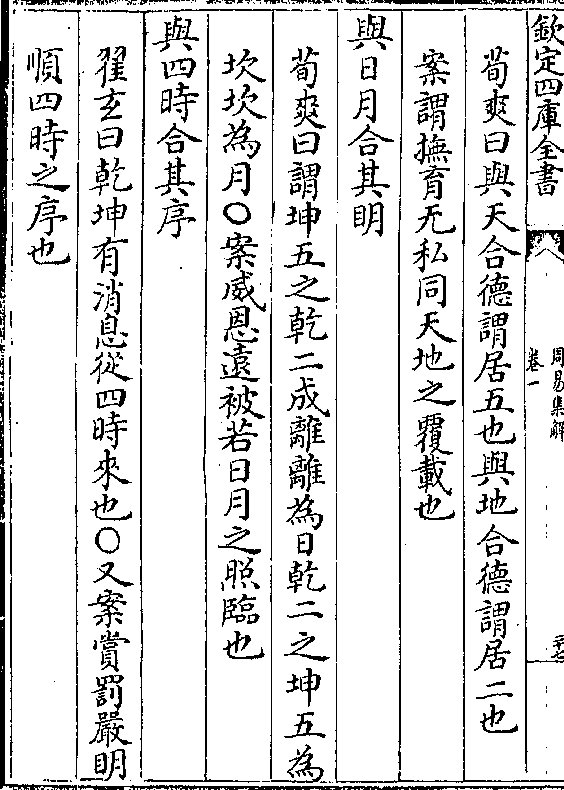 欽定四庫全書
周易集解
卷一
二十七
荀爽曰與天合德謂居五也與地合德謂居二也
案謂撫育无私同天地之覆載也
與日月合其明
荀爽曰謂坤五之乾二成離離為日乾二之坤五為
坎坎為月○案威恩遠被若日月之照臨也
與四時合其序
翟玄曰乾坤有消息從四時來也○又案賞罰嚴明
順四時之序也